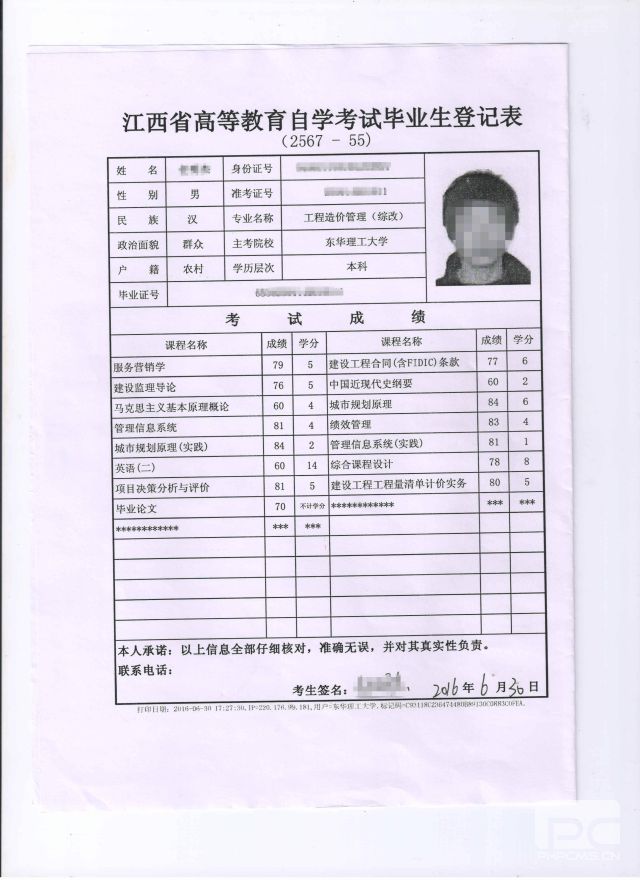 江西省高等教育自学考试毕业生登记表
(2567 - 55)
姓 名 身份证号
性 别 男 准考证号
民 族 汉 专业名称 工程造价管理（综改）
政治面貌 群众 主考院校 东华理工大学
户 籍 农村 学历层次 本科
毕业证号
考 试 成 绩
课程名称 成绩 学分 课程名称 成绩 学分
服务营销学 79 5 建设工程合同(含FIDIC)条款 77 6
建设监理导论 76 5 中国近现代史纲要 60 2
马克思主义基本原理概论 60 4 城市规划原理 84 6
管理信息系统 81 4 绩效管理 83 4
城市规划原理(实践) 84 2 管理信息系统(实践) 81 1
英语(二) 60 14 综合课程设计 78 8
项目决策分析与评价 81 5 建设工程工程量清单计价实务 80 5
毕业论文 70 不计学分 ************ *** ***
************ *** ***
本人承诺：以上信息全部仔细核对，准确无误，并对其真实性负责。
联系电话：
考生签名： 2016 年 6 月 30 日
打印日期：2016-06-30 17:27:30,IP=220.176.99.181,用户=东华理工大学.
PC
PHPCMS.CN